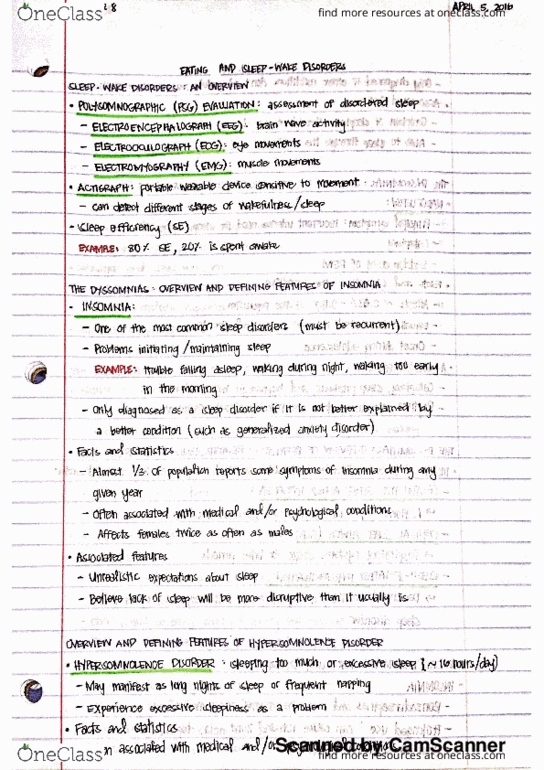 OneClass
L8
APRIL 5, 2016
find more resources at oneclass.com
EATING AND SLEEP-WAKE DISORDERS
SLEEP-WAKE DISORDERS: AN OVERVIEW
• POLYSOMNOGRAPHIC (PSG) EVALUATION: assessment of disordered sleep
- ELECTROENCEPHALOGRAPH (EEG): brain wave activity
- ELECTROOCULOGRAPH (EOG): eye movements
- ELECTROMYOGRAPHY (EMG): muscle movements
• ACTIGRAPH: portable wearable device sensitive to movement
- can detect different stages of wakefulness/sleep
- Sleep efficiency (SE)
EXAMPLE: 80% SE, 20% is spent awake
THE DYSSOMNIAS: OVERVIEW AND DEFINING FEATURES OF INSOMNIA
• INSOMNIA:
- One of the most common sleep disorders (must be recurrent)
- Problems initiating/maintaining sleep
EXAMPLE: trouble falling asleep, waking during night, waking too early
in the morning
- Only diagnosed as a sleep disorder if it is not better explained by
a better condition (such as generalized anxiety disorder)
• Facts and statistics
- Almost 1/3 of population reports some symptoms of insomnia during any
given year
- Often associated with medical and/or psychological conditions
- Affects females twice as often as males
• Associated features
- Unrealistic expectations about sleep
- Believe lack of sleep will be more disruptive than it usually is
OVERVIEW AND DEFINING FEATURES OF HYPERSOMNOLENCE DISORDER
• HYPERSOMNOLENCE DISORDER: sleeping too much or excessive sleep (~10 hours/day)
- May manifest as long nights of sleep or frequent napping
- Experience excessive sleepiness as a problem
• Facts and statistics
n associated with medical and/or
Scanned by CamScanner
OneClass
find more resources at oneclass.com